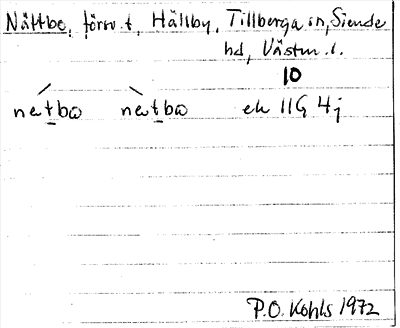 Nåttbo, förr. t. Hällby, Tillberga sn, Siende
hd, Västm. l.
10
natbω natbω ek 11G 4j
P.O. Kohls 1972